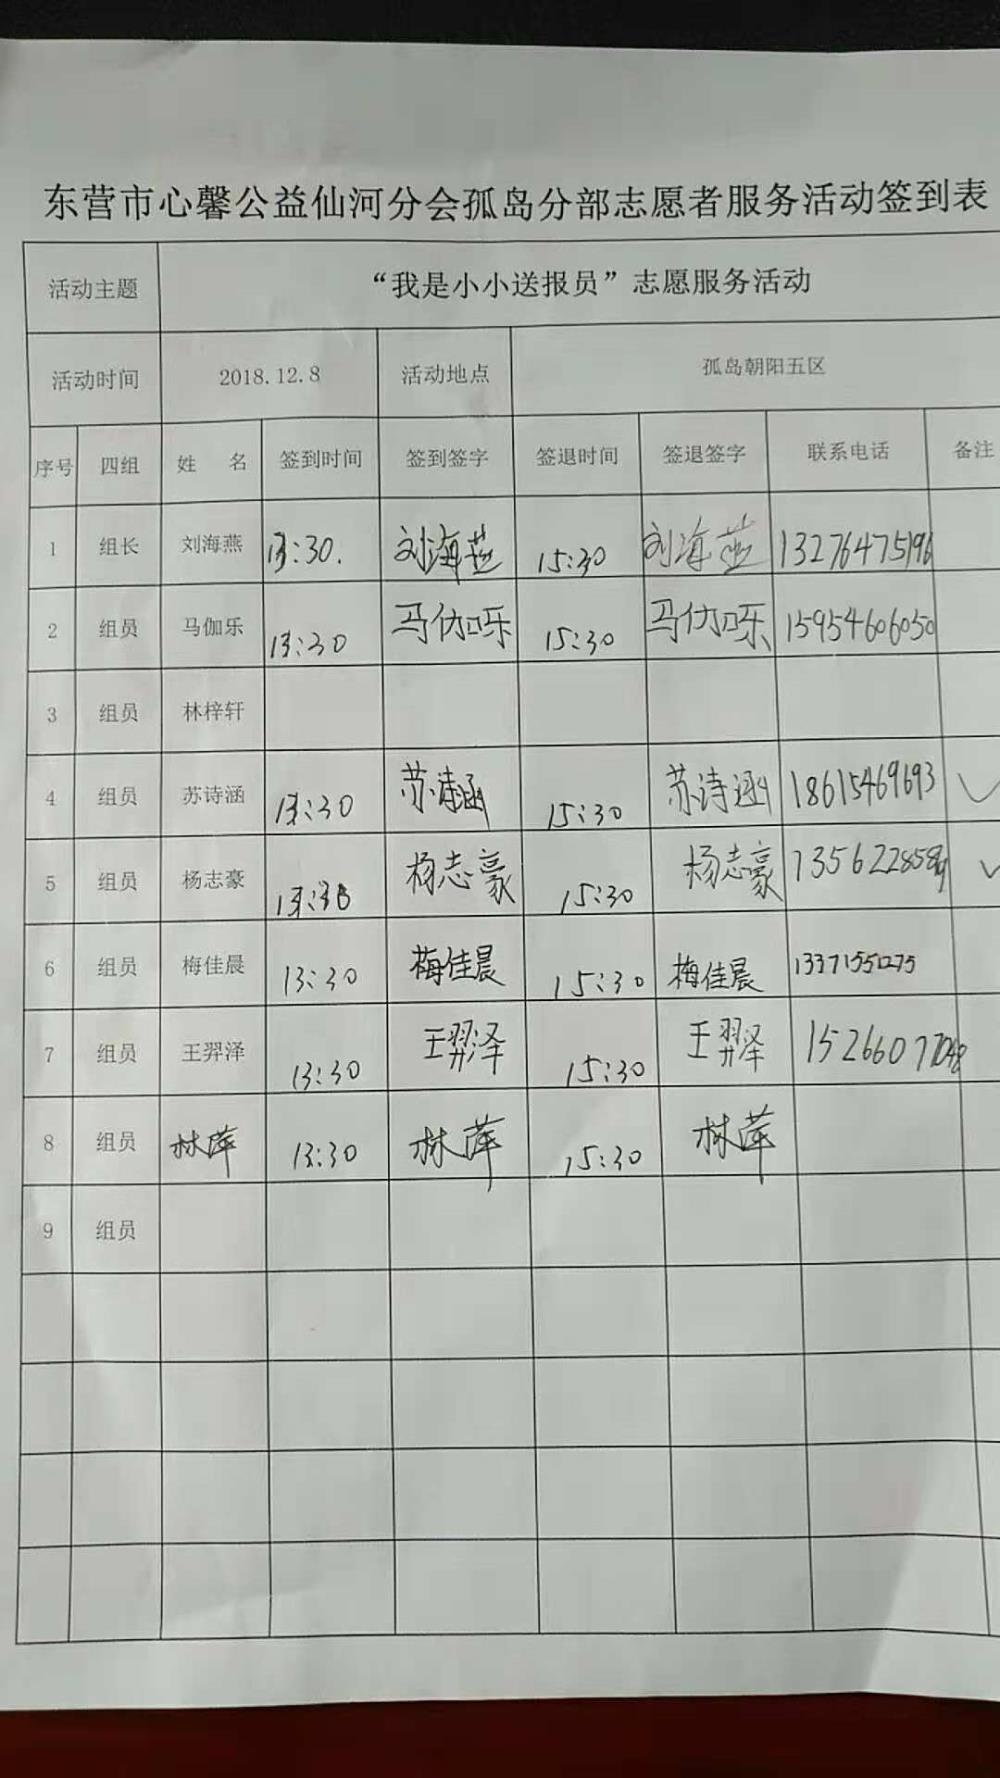 东营市心馨公益仙河分会孤岛分部志愿者服务活动签到表
活动主题 “我是小小送报员”志愿服务活动
活动时间 2018.12.8 活动地点 孤岛朝阳五区
序号 四组 姓 名 签到时间 签到签字 签退时间 签退签字 联系电话 备注
1 组长 刘海燕 13:30. 刘海燕 15:30 刘海燕 13276475196
2 组员 马伽乐 13:30 马伽呀 15:30 马伽呀 15954606050
3 组员 林梓轩
4 组员 苏诗涵 13:30 苏诗涵 15:30 苏诗涵 18615469693 ✓
5 组员 杨志豪 13:30 杨志豪 15:30 杨志豪 ✓
6 组员 梅佳晨 13:30 梅佳晨 15:30 梅佳晨
7 组员 王羿泽 13:30 王羿泽 15:30 王羿泽
8 组员 林萍 13:30 林萍 15:30 林萍
9 组员